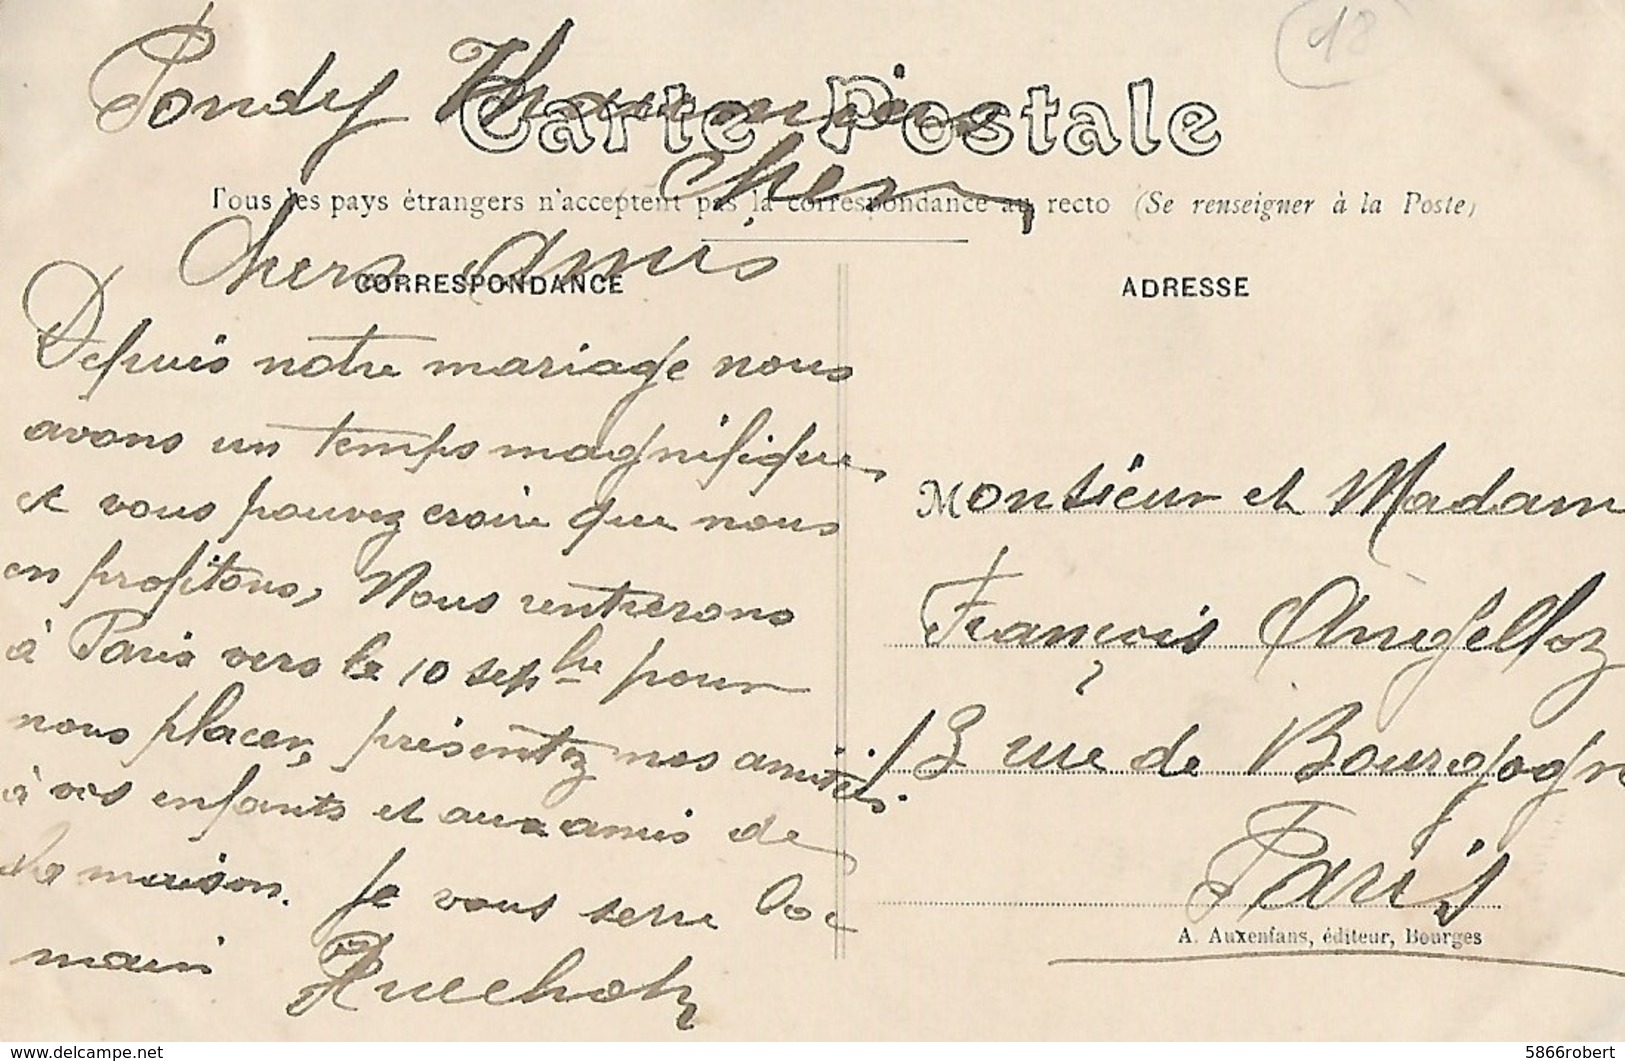 18
Pondy Thaumiers
Cher
Carte Postale
Tous les pays étrangers n'acceptent pas la correspondance au recto (Se renseigner à la Poste)
CORRESPONDANCE
Chers Amis
Depuis notre mariage nous
avons un temps magnifique
et vous pouvez croire que nous
en profitons, Nous rentrerons
à Paris vers le 10 sepbre pour
nous placer, présentez nos amitiés
à vos enfants et aux amis de
la maison. Je vous serre la
main
ADRESSE
Monsieur et Madam
François Angelloz
13 rue de Bourgogn
Paris
A. Auxenfans, éditeur, Bourges
5866robert